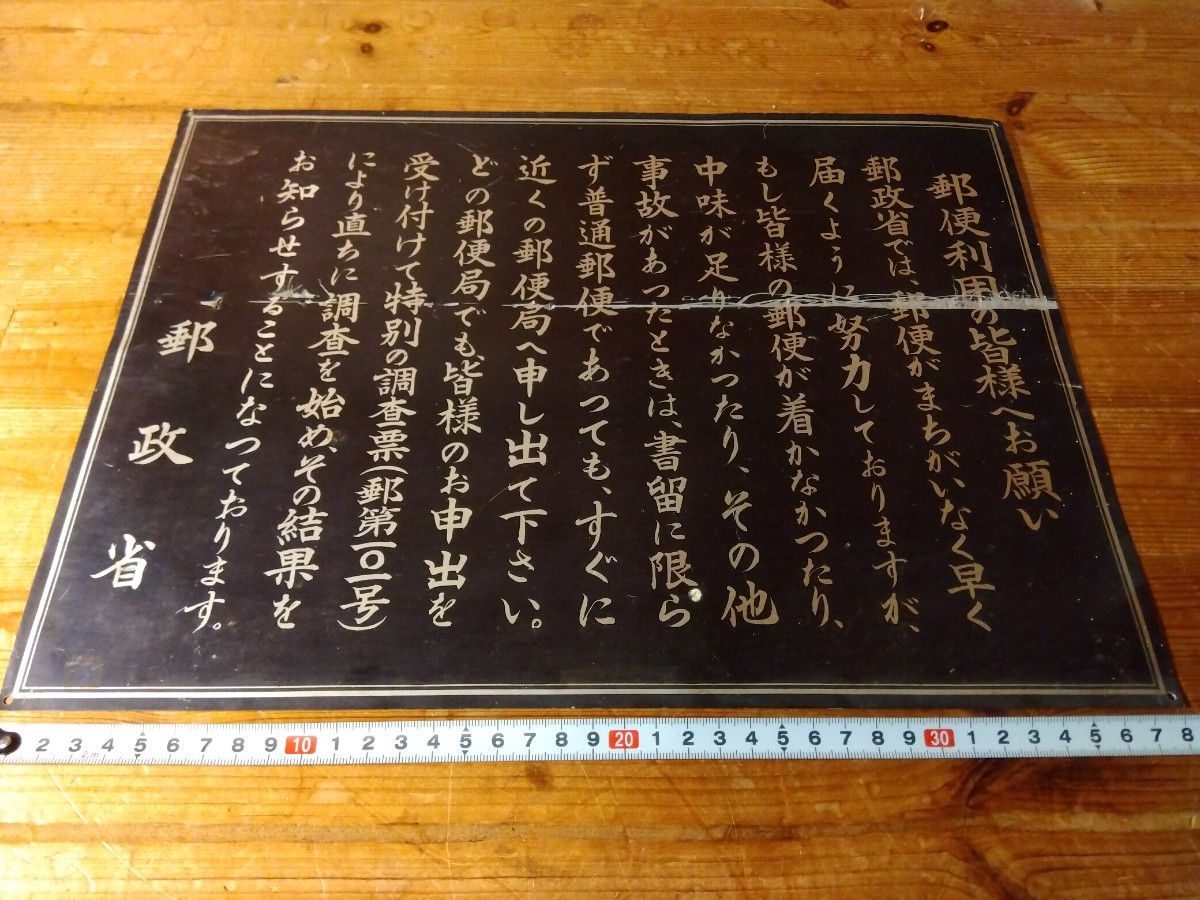 郵便利用の皆様へお願い
郵政省では、郵便がまちがいなく早く
届くように努力しておりますが、
もし皆様の郵便が着かなかつたり、
中味が足りなかつたり、その他
事故があつたときは、書留に限ら
ず普通郵便であつても、すぐに
近くの郵便局へ申し出て下さい。
どの郵便局でも、皆様のお申出を
受け付けて特別の調査票(郵第一〇一号)
により直ちに調査を始め、その結果を
お知らせすることになつております。
郵政省
2 3 4 5 6 7 8 9 10 1 2 3 4 5 6 7 8 9 20 1 2 3 4 5 6 7 8 9 30 1 2 3 4 5 6 7 8
2m